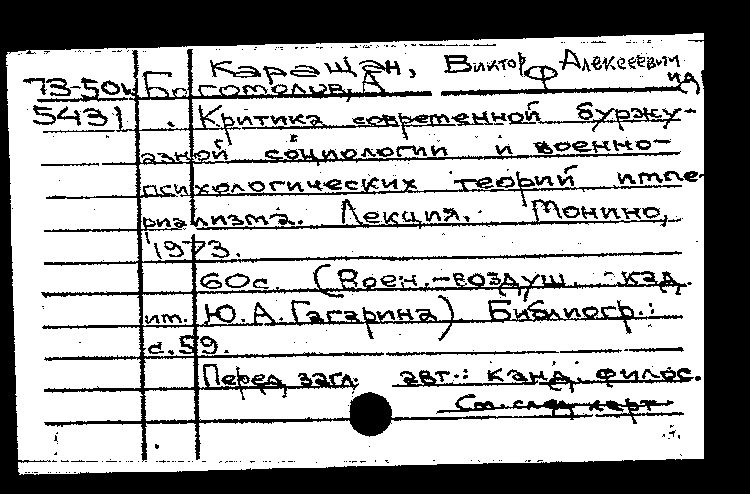 Каращан, Виктор Алексеевич
73-50к Богомолов, А Ф
5431 . Критика современной буржу-
азной социологии и военно-
психологических теорий импе-
риализма. Лекция. Монино,
1973.
60с. (Воен.-воздуш. акад.
им. Ю.А. Гагарина). Библиогр.:
с.59.
Перед загл. авт.: канд. филос.
См. след. карт